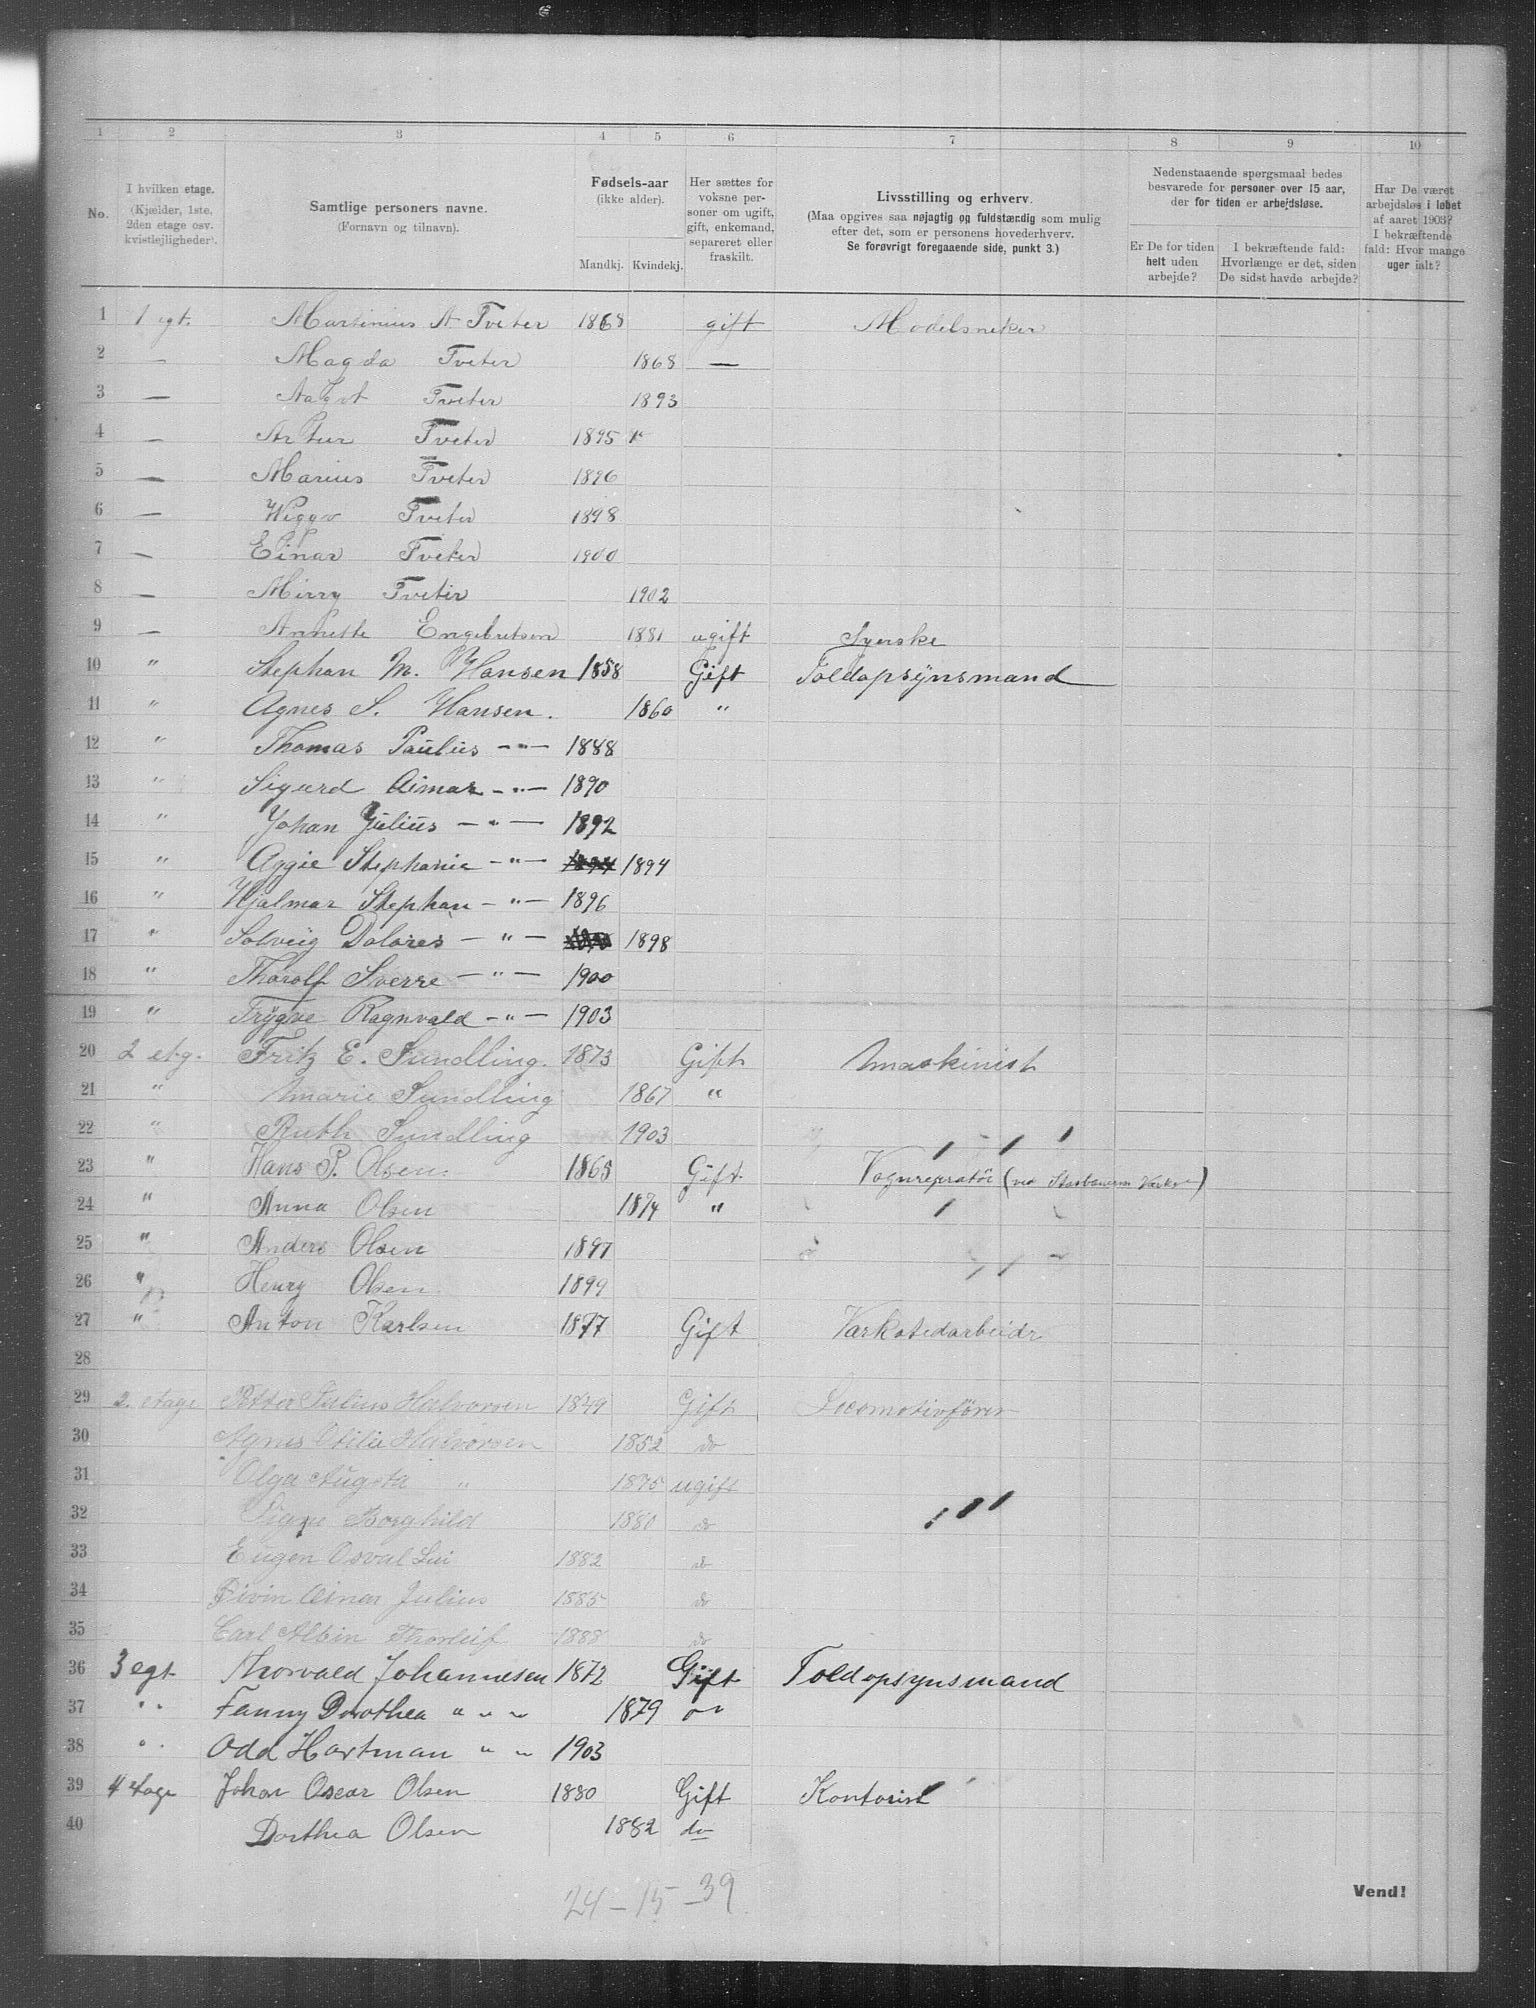 1 2 3 4 5 6 7 8 9 10
No. | I hvilken etage. (Kjælder, 1ste, 2den etage osv. kvistleiligheder). | Samtlige personers navne. (Fornavn og tilnavn). | Fødsels-aar (ikke alder). Mandkj. Kvindekj. | Her sættes for voksne personer om ugift, gift, enkemand, separeret eller fraskilt. | Livsstilling og erhverv. (Maa opgives saa nøjagtig og fuldstændig som mulig efter det, som er personens hovederhverv. Se forøvrigt foregaaende side, punkt 3.) | Nedenstaaende spørgsmaal bedes besvarede for personer over 15 aar, der for tiden er arbejdsløse. Er De for tiden helt uden arbejde? | I bekræftende fald: Hvorlænge er det, siden De sidst havde arbejde? | Har De været arbejdsløs i løbet af aaret 1903? I bekræftende fald: Hvor mange uger ialt?
1 1 egt. Martinius A Tveter 1868 gift Modelsneker
2 — Magda Tveter 1868 —
3 — Aagot Tveter 1893
4 — Artur Tveter 1895
5 — Marius Tveter 1896
6 — Wiggo Tveter 1898
7 — Einar Tveter 1900
8 — Mirry Tveter 1902
9 — Annette Engebretsen 1881 ugift Syerske
10 " Stephan M. Hansen 1858 Gift Toldopsynsmand
11 " Agnes S. Hansen. 1860 "
12 " Thomas Paulius — " — 1888
13 " Sigurd Aimar — " — 1890
14 " Johan Julius — " — 1892
15 " Aggie Stephanie — " — 1894
16 " Hjalmar Stephan — " — 1896
17 " Solveig Dolores — " — 1898
18 " Thorolf Sverre — " — 1900
19 " Trygve Ragnvald — " — 1903
20 2 etg. Fritz E. Sundling. 1873 Gift Maskinist
21 " Marie Sundling 1867 "
22 " Ruth Sundling 1903
23 " Hans P. Olsen. 1865 Gift. Vognrepratör (ved
24 " Anna Olsen 1874 "
25 " Anders Olsen 1897
26 " Henry Olsen 1899
27 " Anton Karlsen 1877 Gift Værkstedarbeidr
28
29 2. etage Petter Julius Halvorsen 1849 Gift Locomotivfører
30 Agnes Otilie Halvorsen 1852 do
31 Olga Augsta " 1875 ugift
32 Signe Borghild 1880 do
33 Eugen Osval 1882 do
34 Eivin Einar Julius 1885 do
35 Carl Albin Thorleif 1888 do
36 3 egt Thorvald Johannesen 1872 Gift Toldopsynsmand
37 " Fanny Dorothea " " " 1879
38 " Odd Hartman " " 1903
39 4 etage Johan Oscar Olsen 1880 Gift Kontorist
40 Dorthea Olsen 1882 do
Vend!
24 — 15 — 39